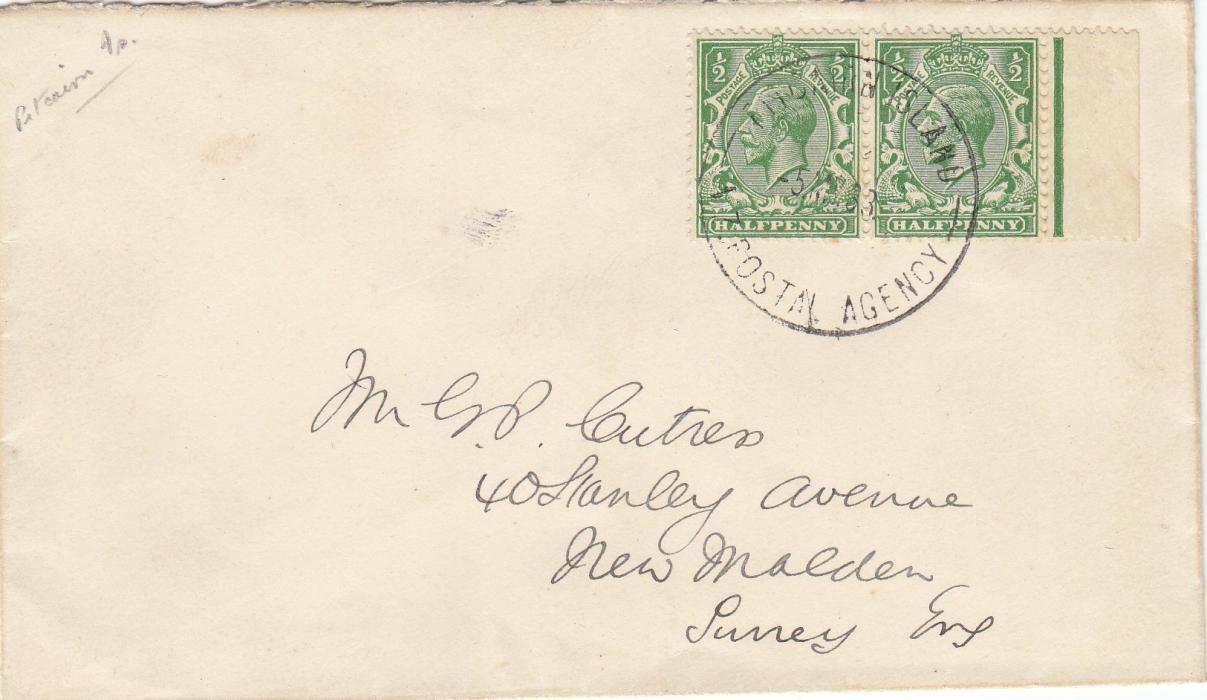 Pitcairn Is.
½ POSTAGE REVENUE ½
HALFPENNY
½ POSTAGE REVENUE ½
HALFPENNY
PITCAIRN ISLAND
N.Z. POSTAL AGENCY
Mr G.P. Cutress
40 Stanley Avenue
New Malden
Surrey Eng